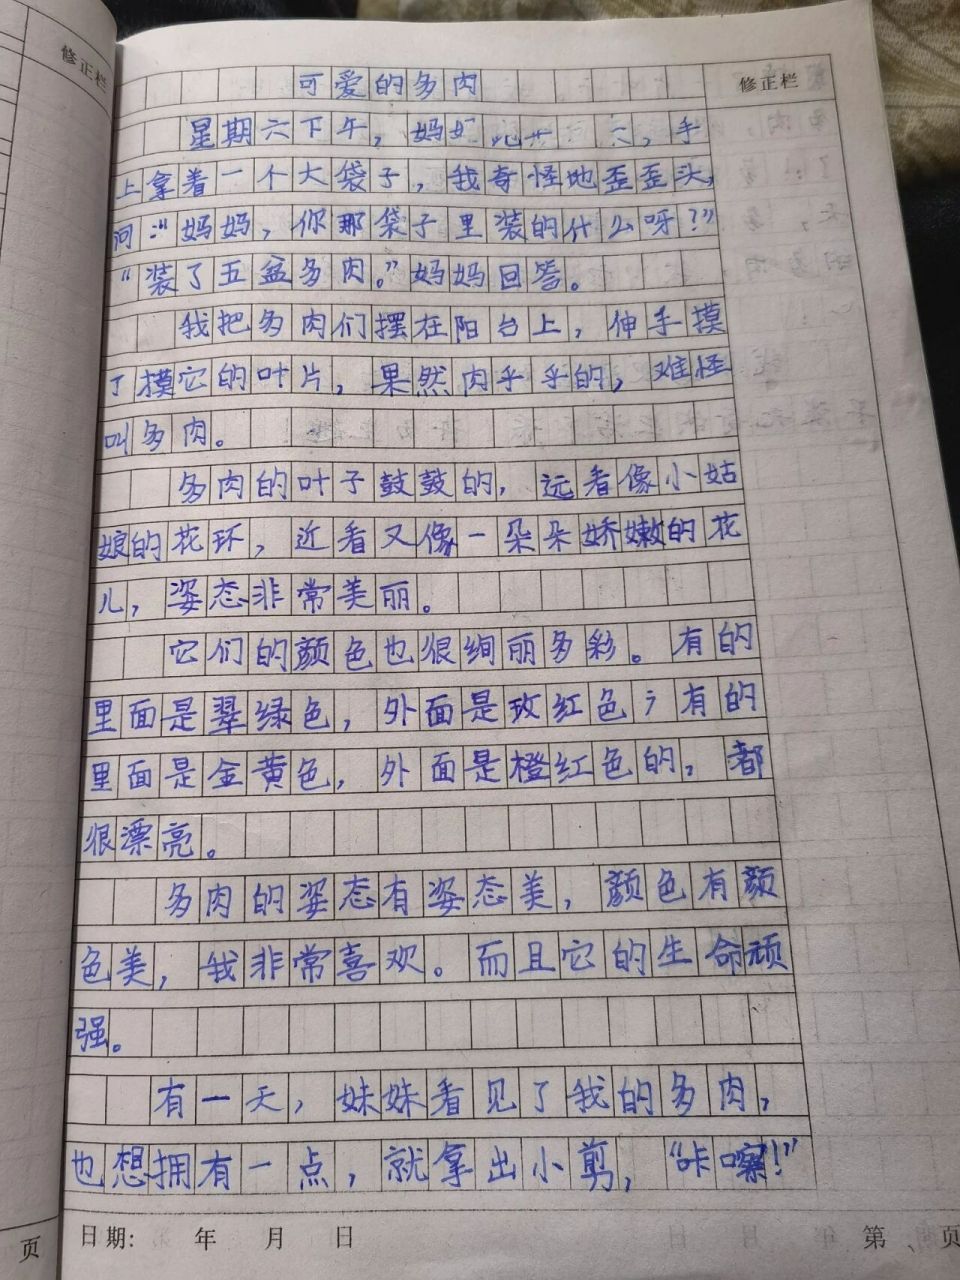 修正栏
修正栏
可爱的多肉
星期六下午，妈妈，手
上拿着一个大袋子，我奇怪地歪歪头，
问：“妈妈，你那袋子里装的什么呀？”
“装了五盆多肉。”妈妈回答。
我把多肉们摆在阳台上，伸手摸
了摸它的叶片，果然肉乎乎的，难怪
叫多肉。
多肉的叶子鼓鼓的，远看像小姑
娘的花环，近看又像一朵朵娇嫩的花
儿，姿态非常美丽。
它们的颜色也很绚丽多彩。有的
里面是翠绿色，外面是玫红色；有的
里面是金黄色，外面是橙红色的，都
很漂亮。
多肉的姿态有姿态美，颜色有颜
色美，我非常喜欢。而且它的生命顽
强。
有一天，妹妹看见了我的多肉，
也想拥有一点，就拿出小剪，“咔嚓！”
日期： 年 月 日 第 页
页